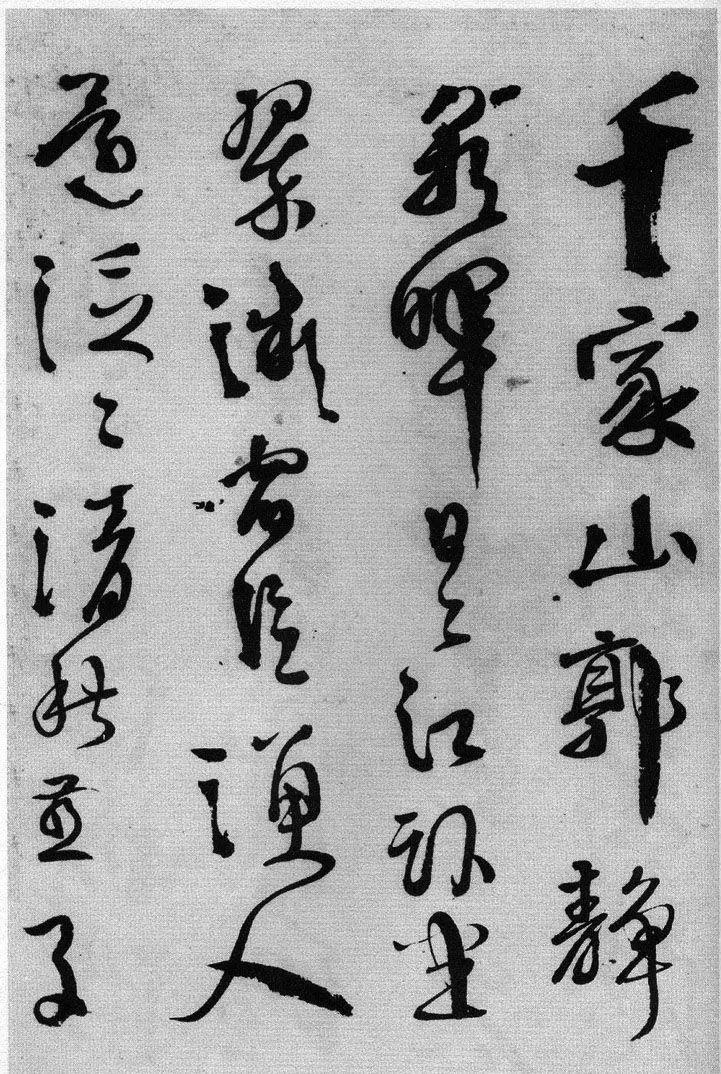 千家山郭靜
朝暉日〻江坐
翠微信漁人
還泛〻清秋燕子